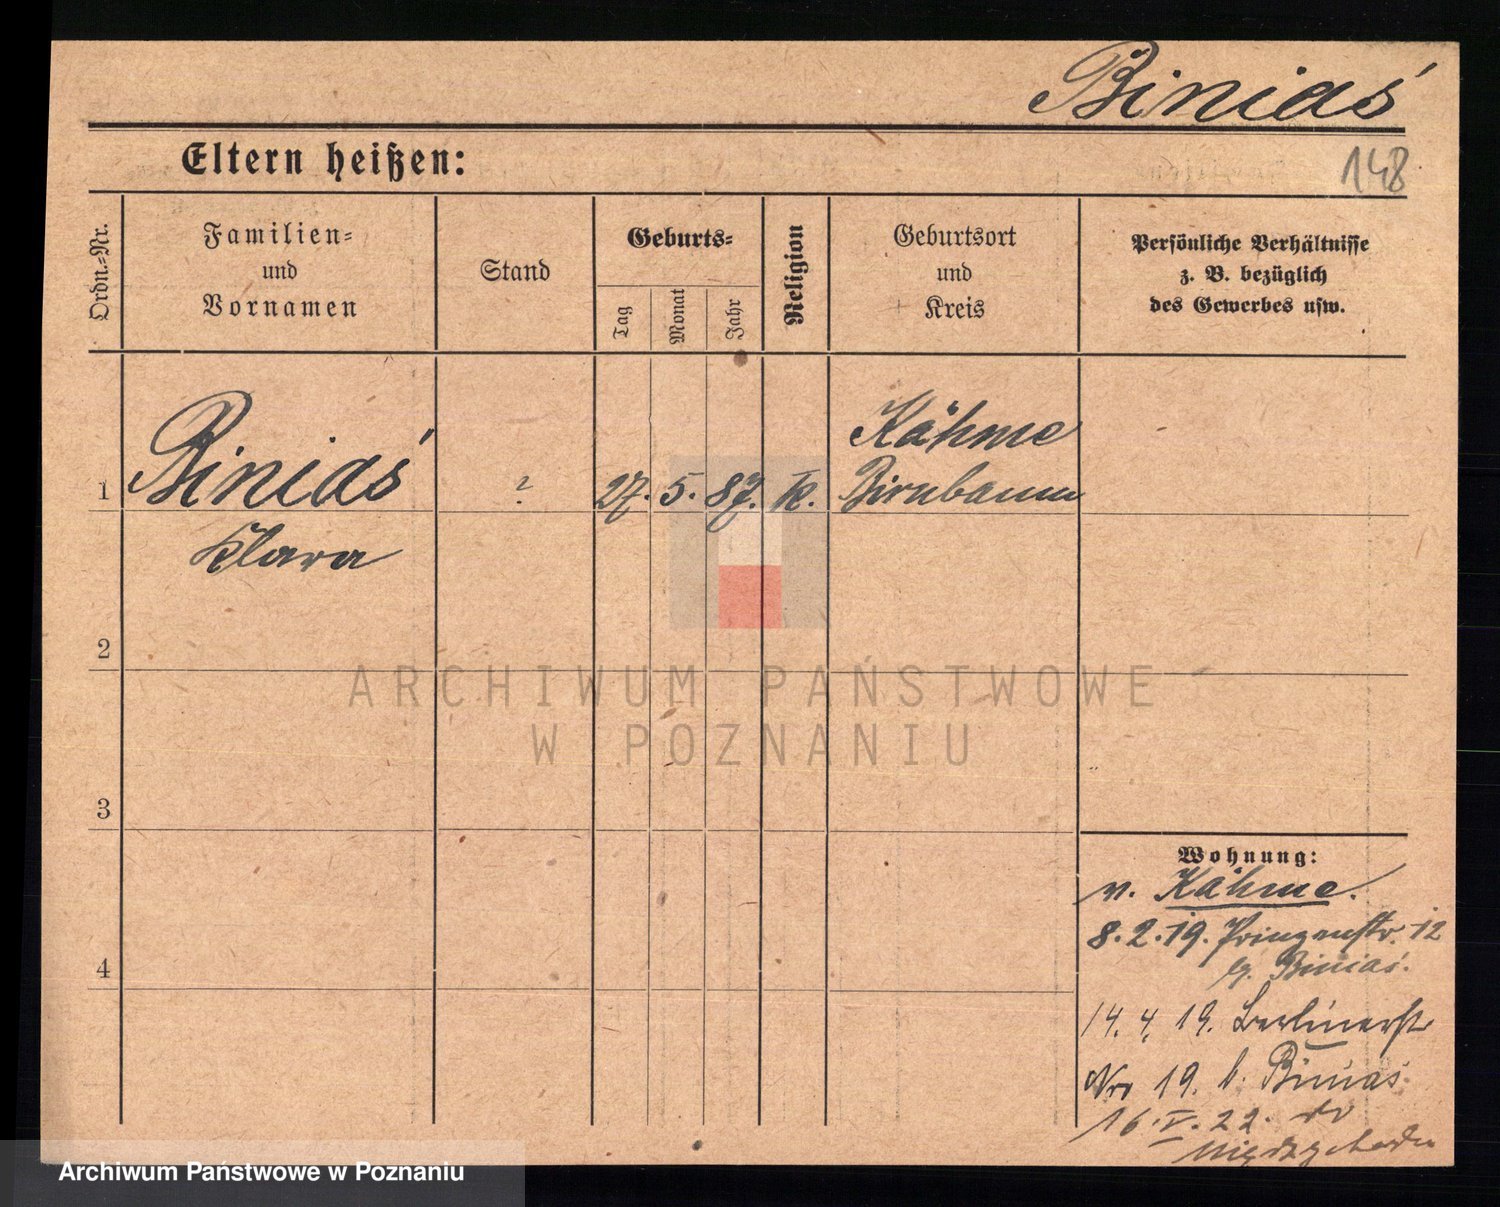 Biniaś
Eltern heißen:
148
Ordn.-Nr.
Familien-
und
Vornamen
Stand
Geburts-
Tag
Monat
Jahr
Religion
Geburtsort
und
Kreis
Persönliche Verhältnisse
z. B. bezüglich
des Gewerbes usw.
1
Biniaś
Klara
?
27. 5. 87. K.
Kähme
Birnbaum
2
3
4
Wohnung:
v. Kähme.
8. 2. 19. Prinzenstr. 12
b. Biniaś.
14. 4. 19. Berlinerstr
Nro 19. b. Biniaś.
16. V. 22. do
ARCHIWUM PAŃSTWOWE
W POZNANIU
Archiwum Państwowe w Poznaniu